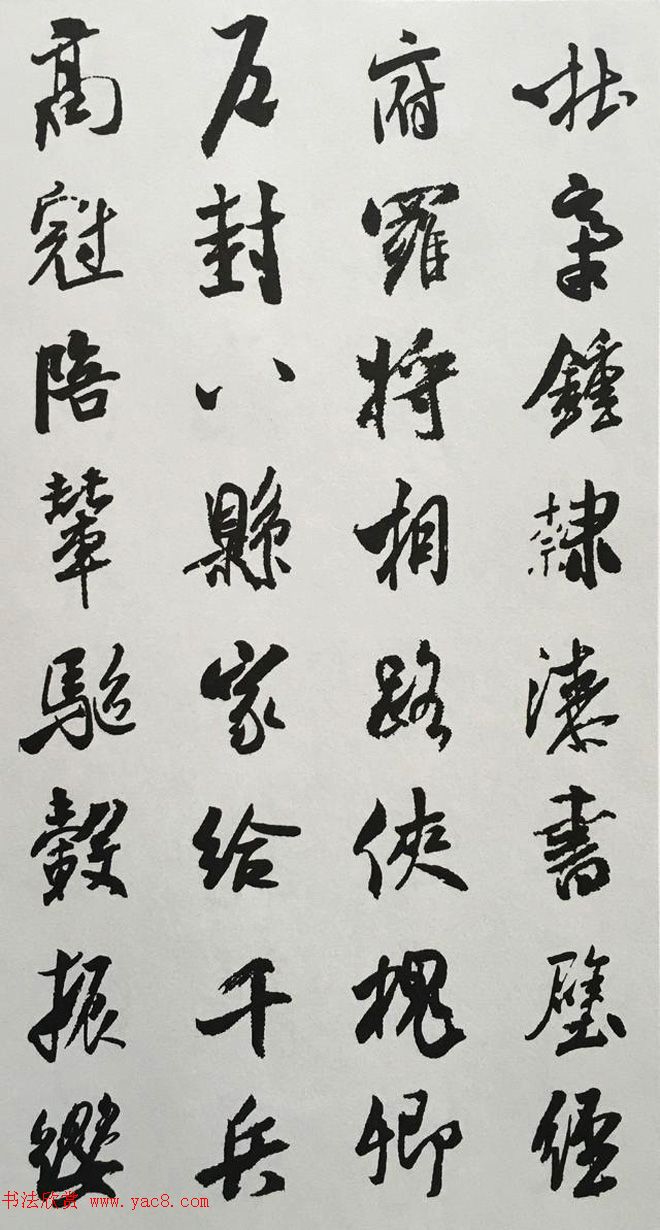 杜稾鍾隸漆書壁經
府羅將相路俠槐卿
戶封八縣家給千兵
高冠陪輦驅轂振纓
书法欣赏 www.yac8.com